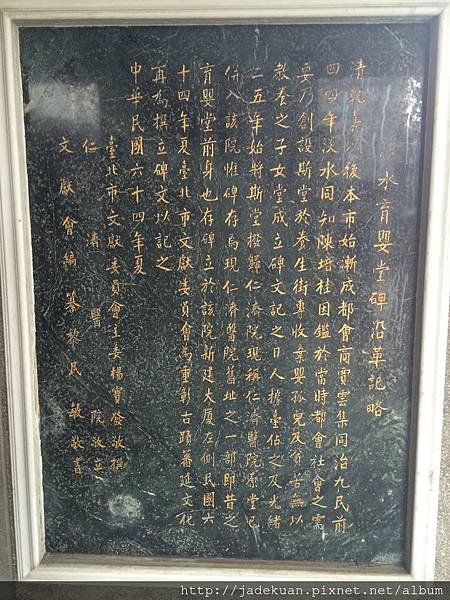 淡水育嬰堂碑沿革記略
清乾嘉以後本市始漸成都會商賈雲集同治九民前
四四年淡水同知陳培桂因鑑於當時都會社會之需
要乃創設斯堂於養生街專收棄嬰孤兒及貧苦無以
教養之子女堂成立碑文記之日人據臺佔之及光緒
二五年始將斯堂撥歸仁濟院現稱仁濟醫院原堂已
併入該院惟碑存為現仁濟醫院舊址之一部即昔之
育嬰堂前身也存碑立於該院新建大厦左側民國六
十四年夏臺北市文獻委員會為重彰古蹟蕃延文化
再為撰立碑文以記之
中華民國六十四年夏
臺北市文獻委員會主委楊寶發敬撰
仁濟醫院敬立
文獻會編纂黎民敏敬書
http://jadekuan.pixnet.net/album